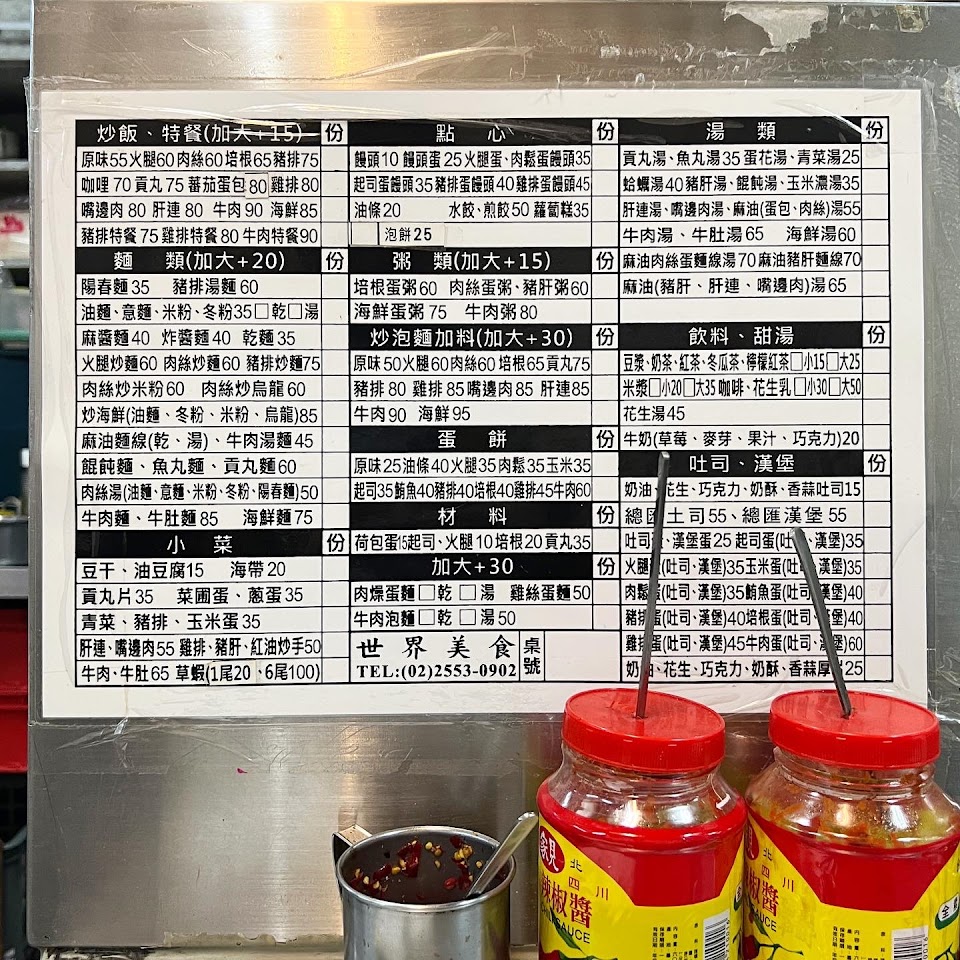 炒飯、特餐(加大+15) 份
原味55火腿60肉絲60培根65豬排75
咖哩70貢丸75蕃茄蛋包80雞排80
嘴邊肉80肝連80 牛肉90海鮮85
豬排特餐75雞排特餐80牛肉特餐90
麵 類(加大+20) 份
陽春麵35 豬排湯麵60
油麵、意麵、米粉、冬粉35□乾□湯
麻醬麵40 炸醬麵40 乾麵35
火腿炒麵60肉絲炒麵60豬排炒麵75
肉絲炒米粉60 肉絲炒烏龍60
炒海鮮(油麵、冬粉、米粉、烏龍)85
麻油麵線(乾、湯)、牛肉湯麵45
餛飩麵、魚丸麵、貢丸麵60
肉絲湯(油麵、意麵、米粉、冬粉、陽春麵)50
牛肉麵、牛肚麵85 海鮮麵75
小 菜 份
豆干、油豆腐15 海帶20
貢丸片35 菜圃蛋、蔥蛋35
青菜、豬排、玉米蛋35
肝連、嘴邊肉55雞排、豬肝、紅油炒手50
牛肉、牛肚65草蝦(1尾20、6尾100)
點 心 份
饅頭10饅頭蛋25火腿蛋、肉鬆蛋饅頭35
起司蛋饅頭35豬排蛋饅頭40雞排蛋饅頭45
油條20 水餃、煎餃50蘿蔔糕35
泡餅25
粥 類(加大+15) 份
培根蛋粥60 肉絲蛋粥、豬肝粥60
海鮮蛋粥75 牛肉粥80
炒泡麵加料(加大+30) 份
原味50火腿60肉絲60培根65貢丸75
豬排80雞排85嘴邊肉85肝連85
牛肉90 海鮮95
蛋 餅 份
原味25油條40火腿35肉鬆35玉米35
起司35鮪魚40豬排40培根40雞排45牛肉60
材 料 份
荷包蛋15起司、火腿10培根20貢丸35
加大+30 份
肉燥蛋麵□乾□湯 雞絲蛋麵50
牛肉泡麵□乾□湯50
世界美食 桌號
TEL:(02)2553-0902
湯 類 份
貢丸湯、魚丸湯35蛋花湯、青菜湯25
蛤蠣湯40豬肝湯、餛飩湯、玉米濃湯35
肝連湯、嘴邊肉湯、麻油(蛋包、肉絲)湯55
牛肉湯、牛肚湯65 海鮮湯60
麻油肉絲蛋麵線湯70麻油豬肝麵線70
麻油(豬肝、肝連、嘴邊肉)湯65
飲料、甜湯 份
豆漿、奶茶、紅茶、冬瓜茶、檸檬紅茶□小15□大25
米漿□小20□大35咖啡、花生乳□小30□大50
花生湯45
牛奶(草莓、麥芽、果汁、巧克力)20
吐司、漢堡 份
奶油、花生、巧克力、奶酥、香蒜吐司15
總匯土司55、總匯漢堡55
吐司蛋、漢堡蛋25起司蛋(吐司、漢堡)35
火腿蛋(吐司、漢堡)35玉米蛋(吐司、漢堡)35
肉鬆蛋(吐司、漢堡)35鮪魚蛋(吐司、漢堡)40
豬排蛋(吐司、漢堡)40培根蛋(吐司、漢堡)40
雞排蛋(吐司、漢堡)45牛肉蛋(吐司、漢堡)60
奶油、花生、巧克力、奶酥、香蒜厚 25
北四川
辣椒醬
SAUCE
北四川
椒醬
SAUCE